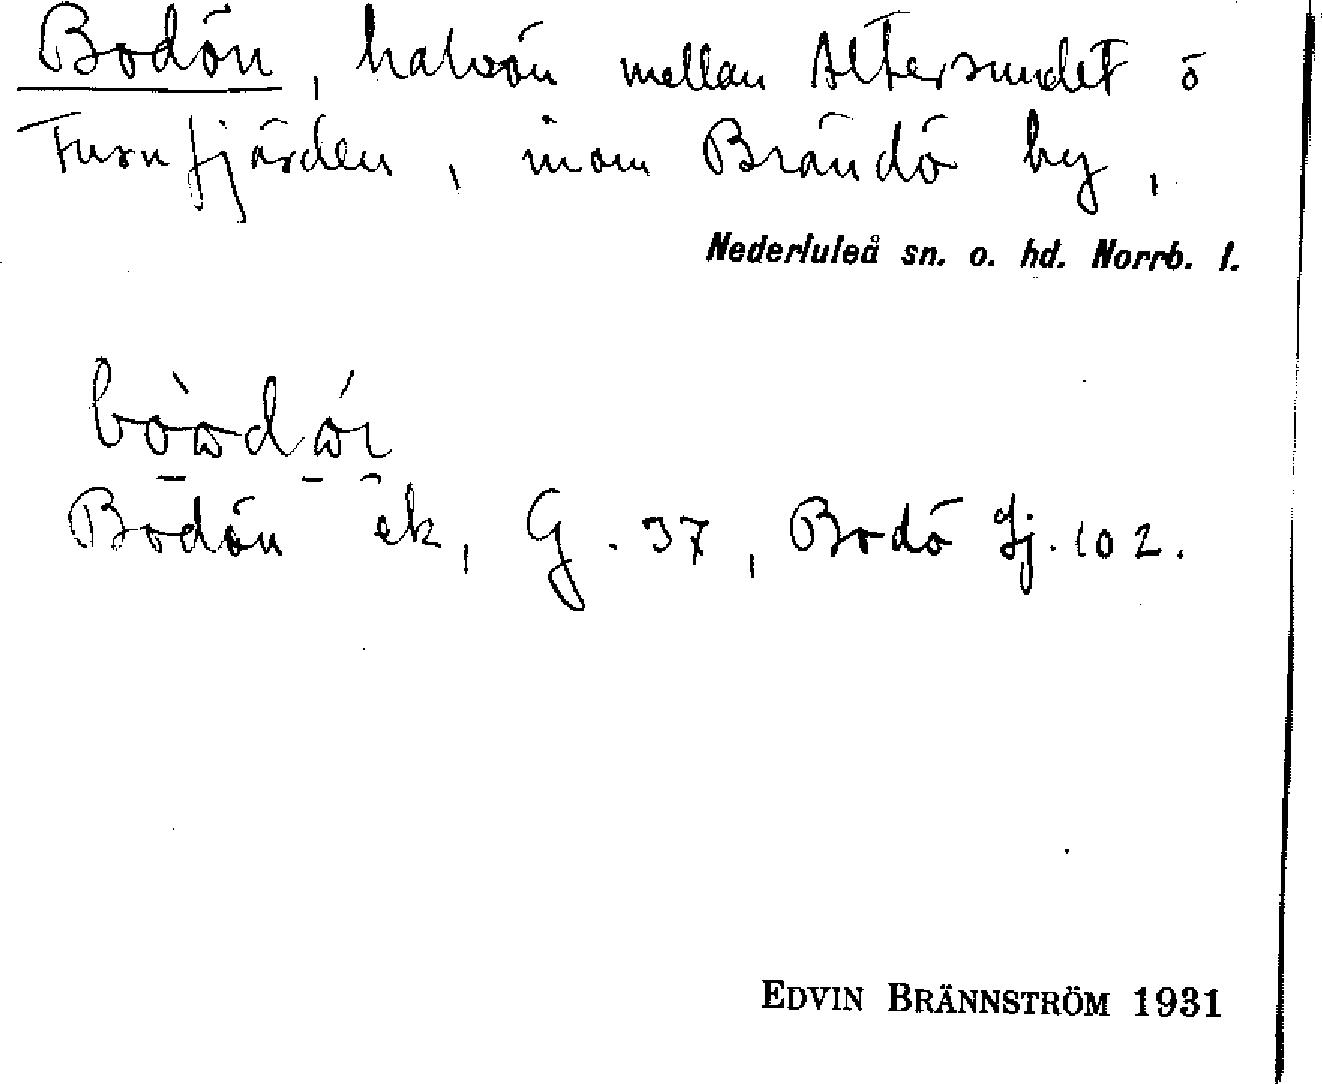 Bodön, halvön mellan Altersundet o
Furufjärden, inom Brändö by,
Nederluleå sn. o. hd. Norrb. l.
Bodön ek, G. 37, Bodö Jj. 102.
EDVIN BRÄNNSTRÖM 1931